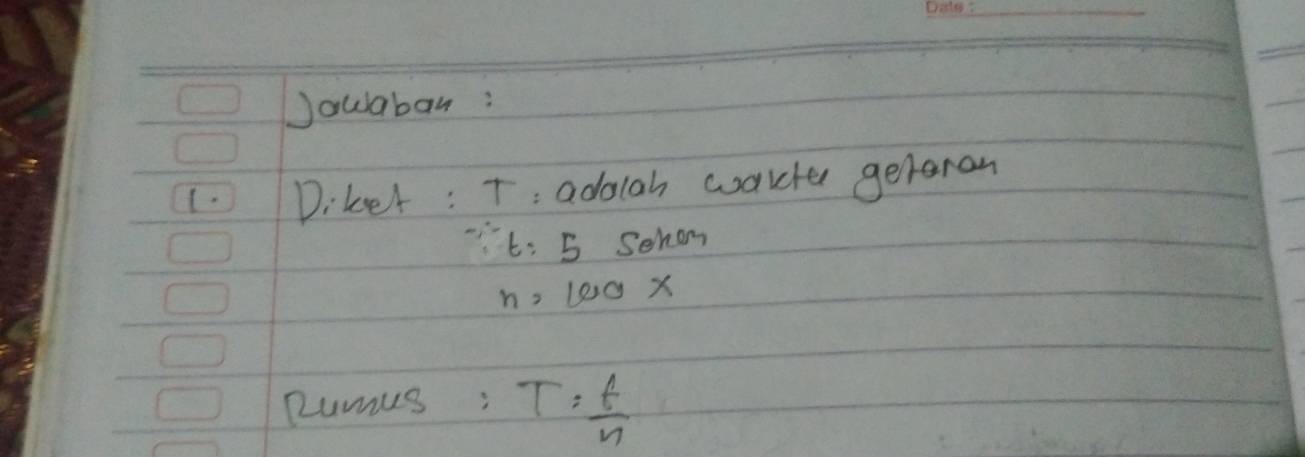 Date :
Jawaban :
1. Diket : T : adalah waktu getaran
t : 5 Sekon
n = 100 x
Rumus : T = t/n